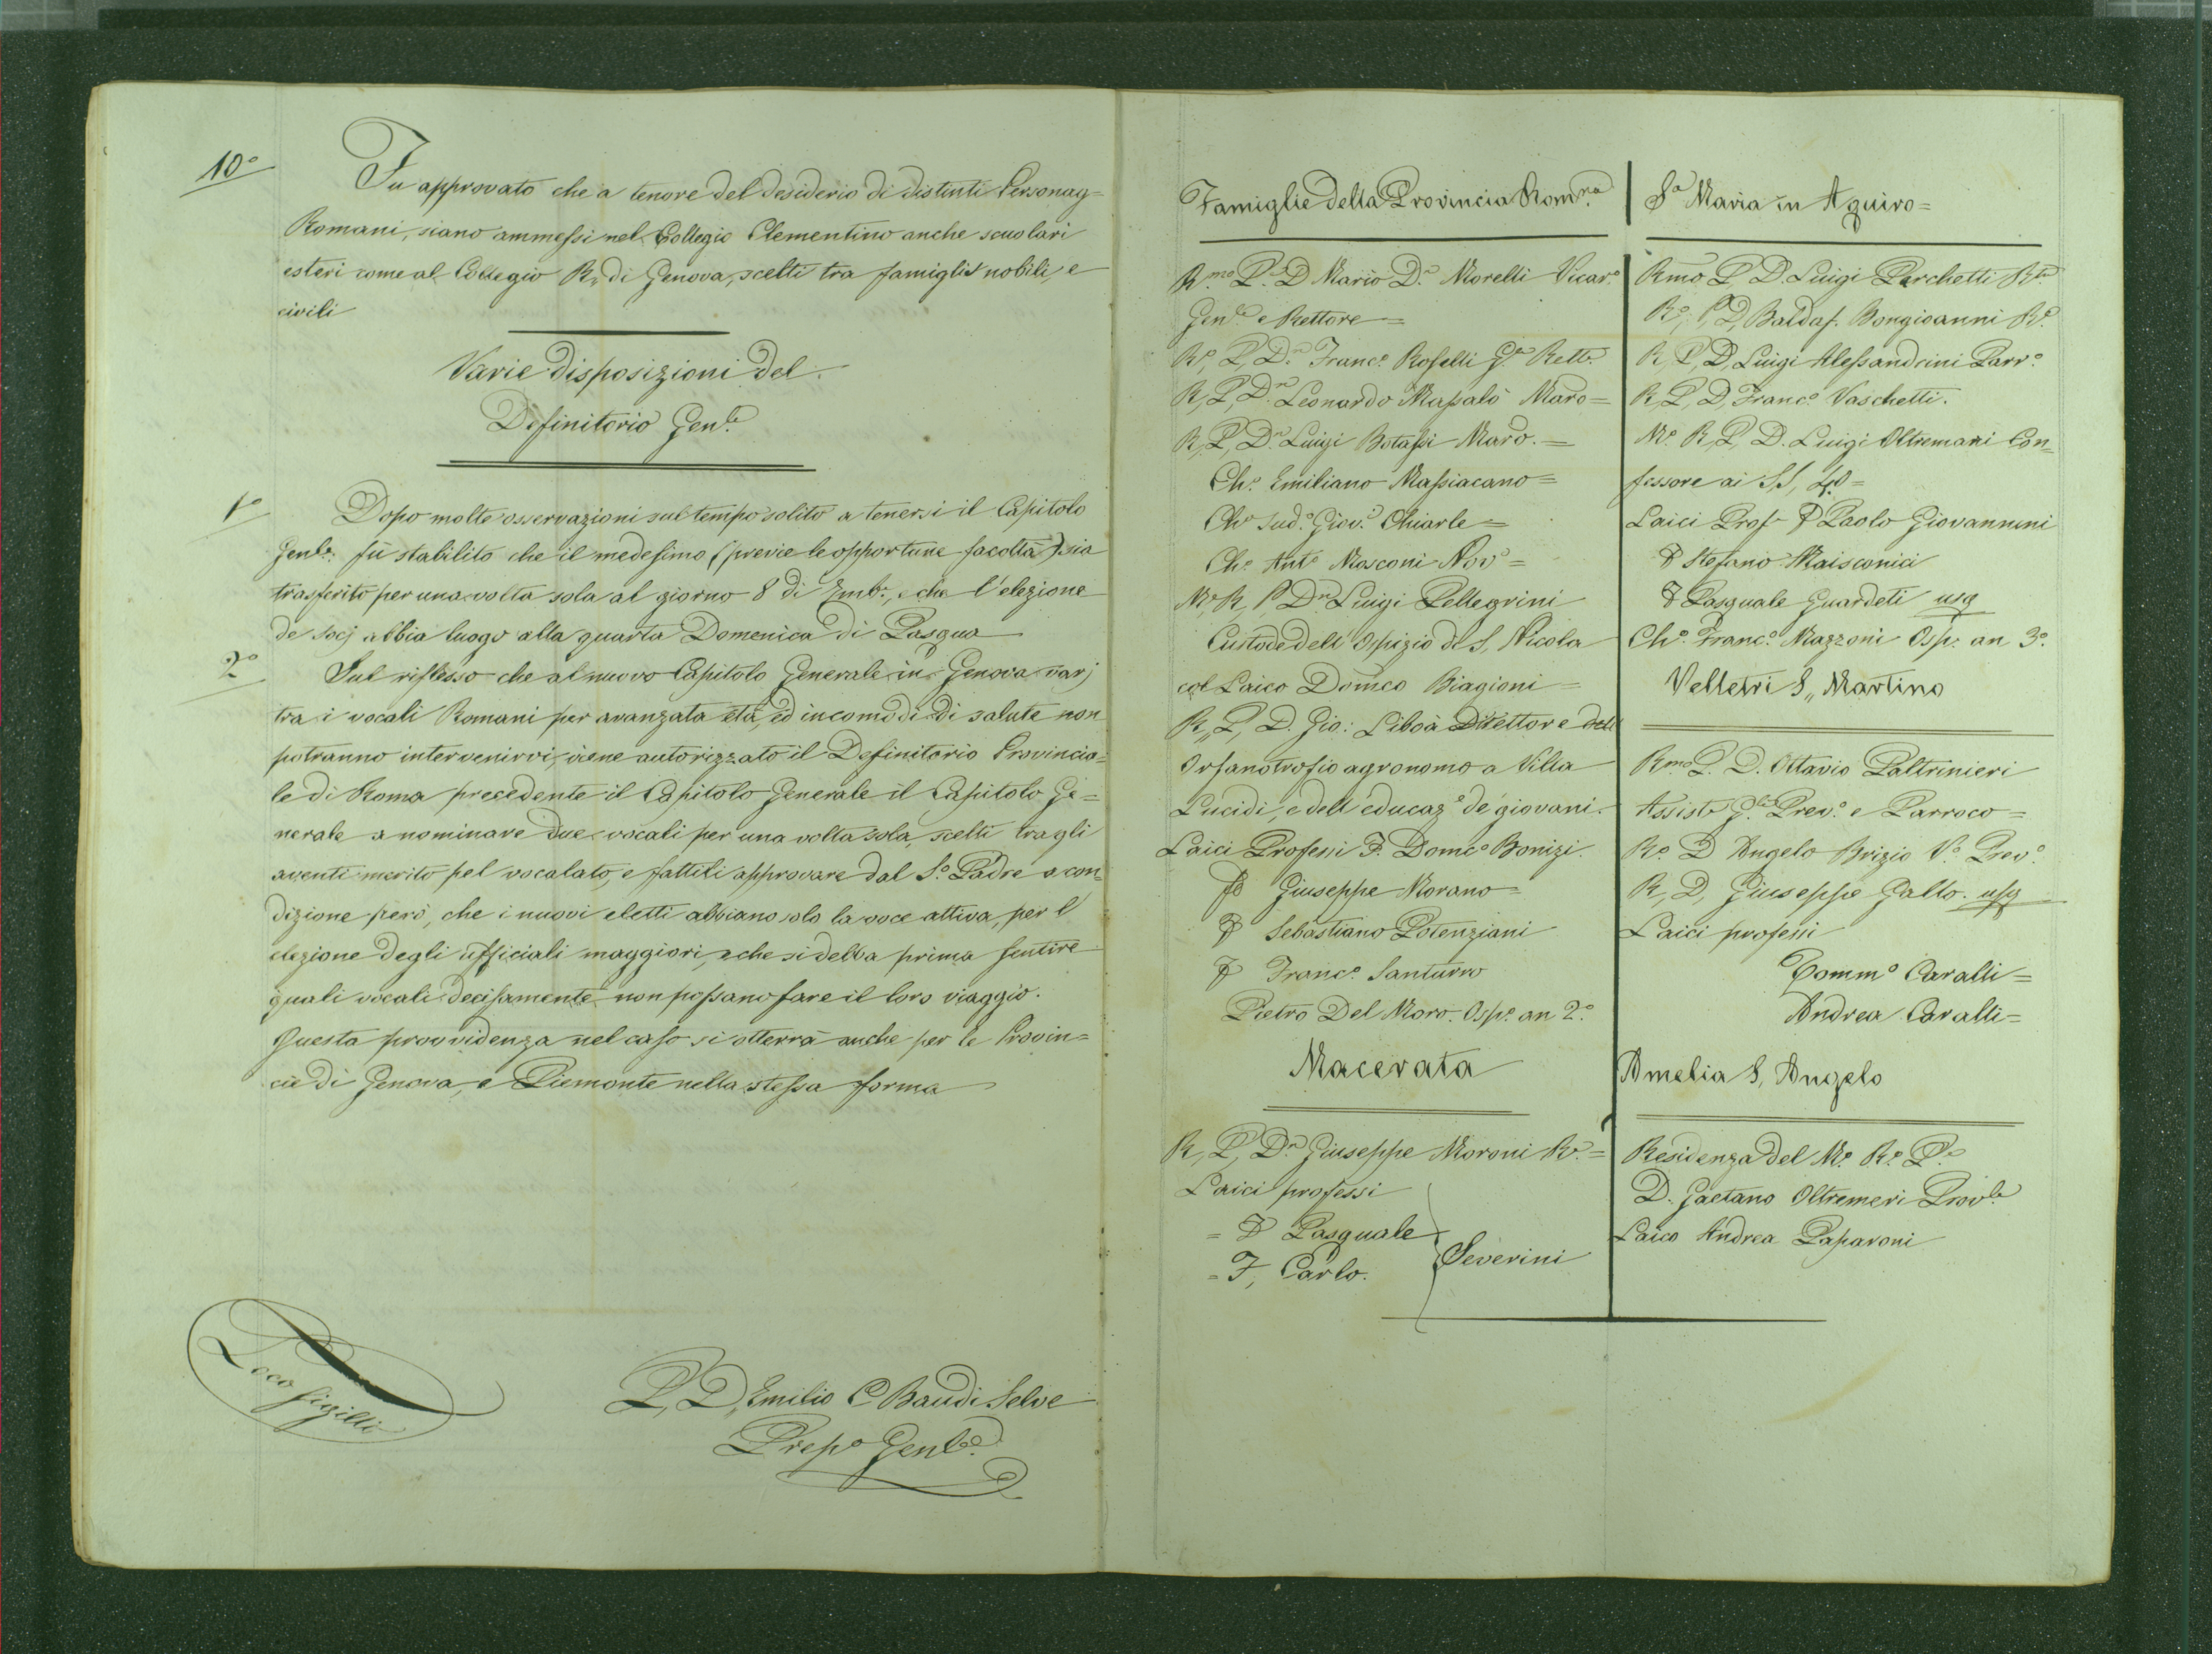 10º
Fu approvato che a tenore del desiderio di distinti Personag=
Romani, siano ammessi nel Collegio Clementino anche scuolari
esteri come al Collegio R. di Genova, scelti tra famiglie nobili, e
civili
Varie disposizioni del
Definitorio Gen.le
1º
Dopo molte osservazioni sul tempo solito a tenersi il Capitolo
Genle. fù stabilito che il medesimo (previe le opportune facoltà) sia
trasferito per una volta sola al giorno 8 di Embr., e che l'elezione
de socj abbia luogo alla quarta Domenica di Pasqua
2º
Sul riflesso che al nuovo Capitolo Generale in Genova varj
tra i vocali Romani per avanzata età, ed incomodi di salute non
potranno intervenirvi, viene autorizzato il Definitorio Provincia=
le di Roma precedente il Capitolo Generale il Capitolo Ge=
nerale a nominare due vocali per una volta sola, scelti tra gli
aventi merito pel vocalato, e fattili approvare dal Sº. Padre a con=
dizione però, che i nuovi eletti abbiano solo la voce attiva, per l'
elezione degli ufficiali maggiori, e che si debba prima sentire
quali vocali decisamente non possano fare il loro viaggio.
Questa provvidenza nel caso si otterrà anche per le Provin=
cie di Genova, e Piemonte nella stessa forma
Loco sigilli
P. D. Emilio C Baudi Selve
Prepº Genle.
Famiglie della Provincia Rom.na
R.mo P. D Mario D.n Morelli Vicar.º
Gen.le e Rettore =
Rº, P, D.n Franc.º Roselli Rett.
R, P, D.n Leonardo Maro =
R, P, D.n Luigi Botassi Maro. =
Ch.º Emiliano Massiacano =
Chº sud.º Giov.i Chiarle =
Ch.º Ant.º Mosconi Novº =
Mº R, P D.n Luigi Pellegrini
Custode dell Ospizio di S, Nicola
col Laico Domco Biagioni =
R,, P, D. Gio: Liboà Direttore dell
Orfanotrofio agronomo a Villa
Lucidi, e dell'educazº de' giovani.
Laici Professi F. Domcº Bonizi.
F Giuseppe Morano =
F Sebastiano Potenziani
F Franc.º Santurro
Pietro Del Moro. Osp.º an 2.º
Macerata
R, P, D.n Giuseppe Moroni R.e =
Laici professi
= F Pasquale
= F, Carlo.
Severini
S.a Maria in Aquiro =
Rmo P D. Luigi Parchetti
Rº, P, D, Baldas. Bongioanni
R, P, D, Luigi Alessandrini Parr.º
R, P, D, Franc.º Vaschetti.
Mº. R, P, D. Luigi Oltremari Con=
fessore ai SS,
Laici Prof. F Paolo Giovannini
F Stefano Maisconici
F Pasquale Guardeti usq
Ch.º Franc.º Mazzoni Osp. an 3.º
Velletri S,, Martino
R.mo P. D. Ottavio Paltrinieri
Assist. G.le Prev.º e Parroco =
R.º D Angelo Brizio V.º Prev.º
R, D, Giuseppe Gallo. usq
Laici professi
Commº Caralli =
Andrea Caralli =
Amelia S, Angelo
Residenza del M.º R.º P.e
D. Gaetano Oltremeri Prov.le
Laico Andrea Paparoni